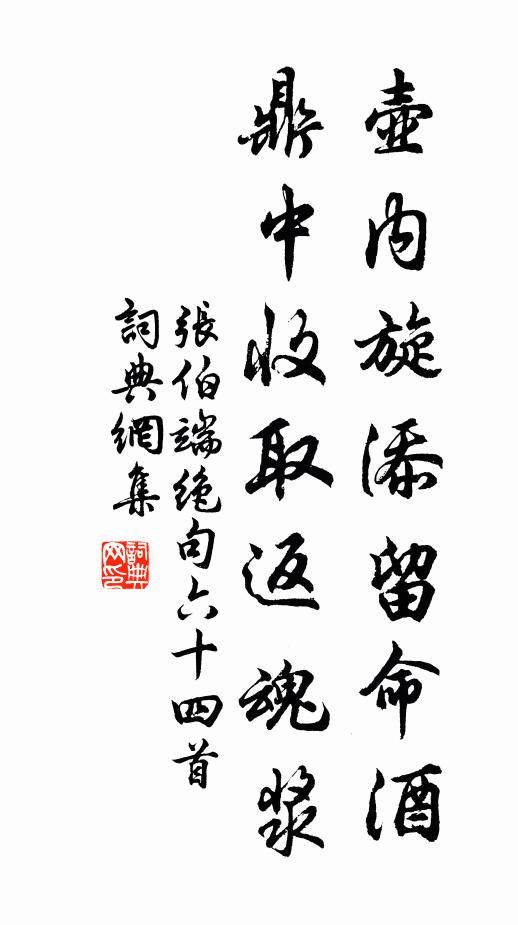 壺内旋添留命酒
鼎中收取返魂漿
張伯端絶句六十四首
詞典網集
詞典网印